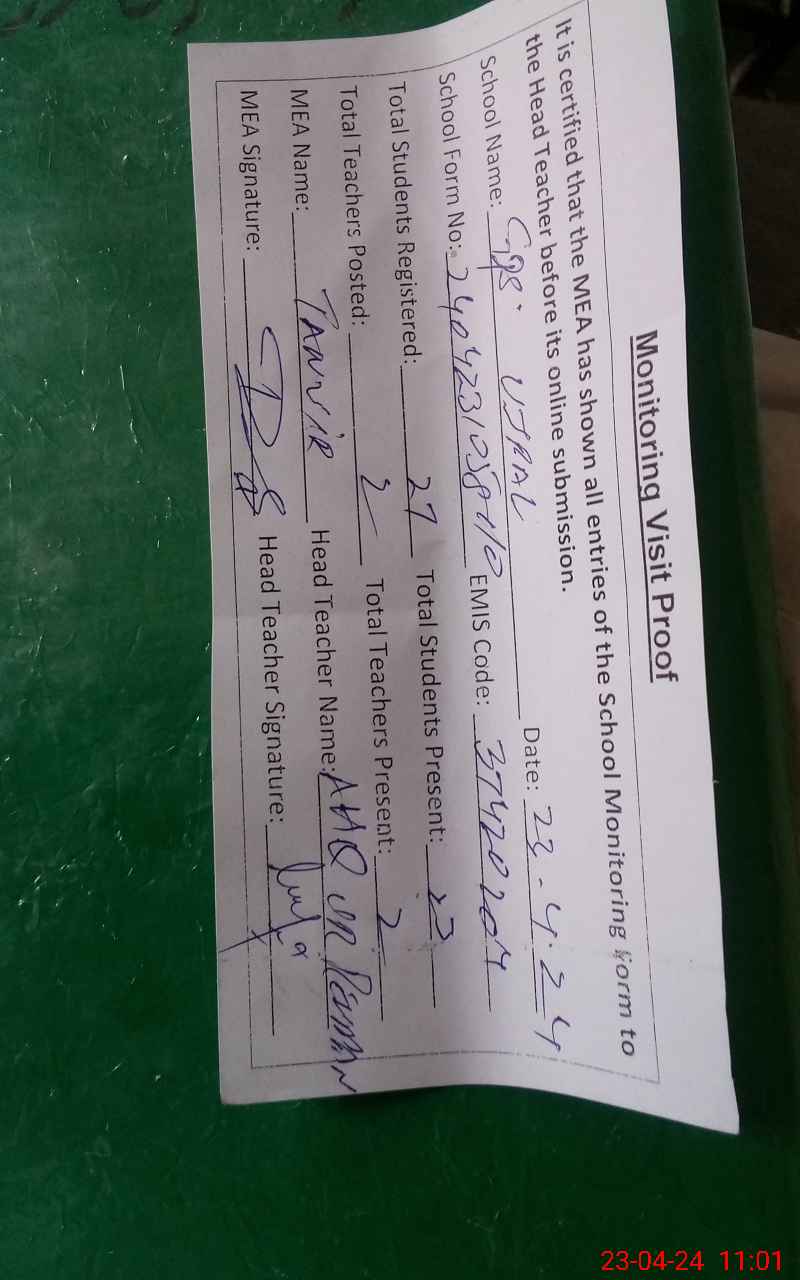 Monitoring Visit Proof
It is certified that the MEA has shown all entries of the School Monitoring Form to
the Head Teacher before its online submission.
School Name: GPS. UTRAL Date: 23-4-24
School Form No: EMIS Code: 37420204
Total Students Registered: 27 Total Students Present: 23
Total Teachers Posted: 2 Total Teachers Present: 2
MEA Name: TANVIR Head Teacher Name: 
MEA Signature: Head Teacher Signature:
23-04-24 11:01